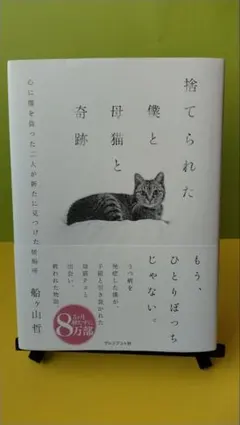 捨てられた
僕と
母猫と
奇跡
心に傷を負った二人が新たに見つけた居場所
船ヶ山哲
もう、
ひとりぼっち
じゃない。
うつ病を
発症した僕が、
子猫と引き裂かれた
母猫チョと
出会い、
救われた物語。
8万部
プレジデント社